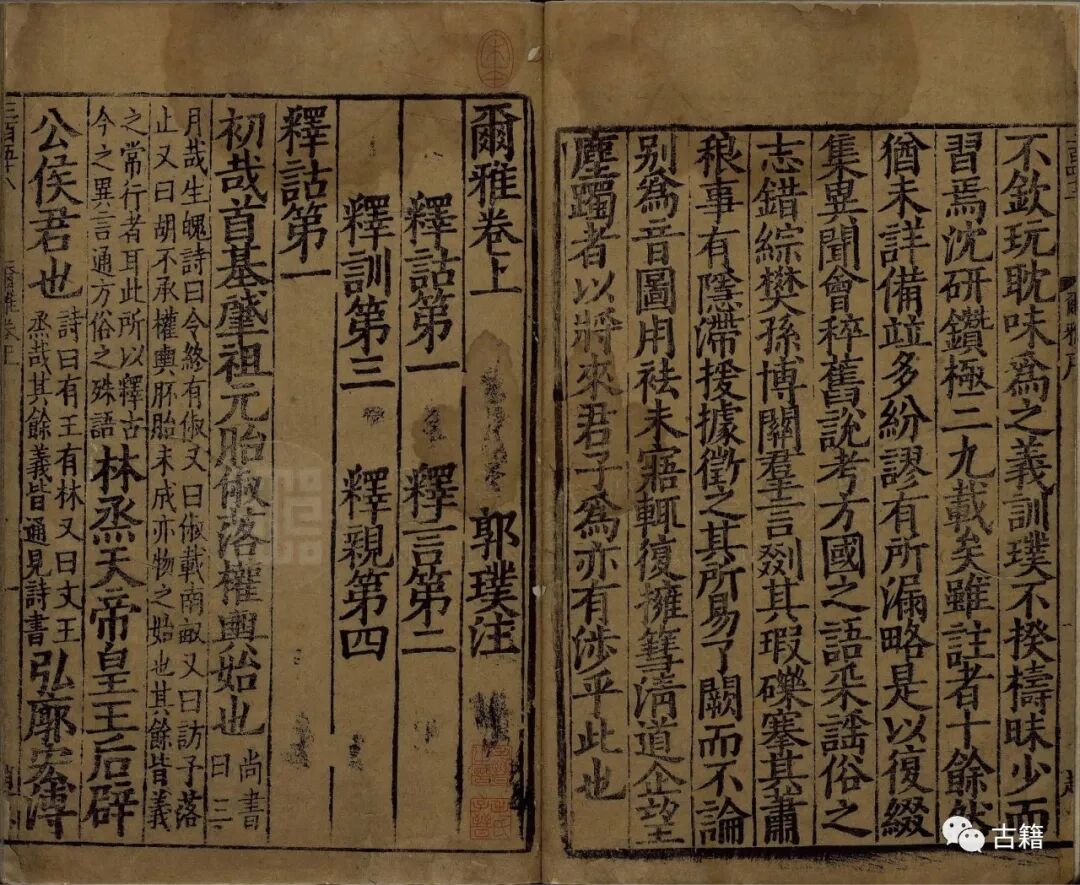 不欽玩耽味爲之義訓璞不揆檮昧少而
習焉沈研鑽極二九載矣雖註者十餘然
猶未詳備竝多紛謬有所漏略是以復綴
集異聞會稡舊說考方國之語采謡俗之
志錯綜樊孫博關羣言剟其瑕礫搴其蕭
稂事有隱滯援據徵之其所易了闕而不論
别爲音圖用袪未寤輒復擁篲清道企望
塵躅者以將來君子爲亦有涉乎此也
爾雅卷上 郭璞注
釋詁第一 釋言第二
釋訓第三 釋親第四
釋詁第一
初哉首基肇祖元胎俶落權輿始也 尚書曰三
月哉生魄詩曰令終有俶又曰俶載南畝又曰訪予落
止又曰胡不承權輿胚胎未成亦物之始也其餘皆義
之常行者耳此所以釋古
今之異言通方俗之殊語 林烝天帝皇王后辟
公侯君也 詩曰有王有林又曰文王
烝哉其餘義皆通見詩書 弘廓宏溥
古籍